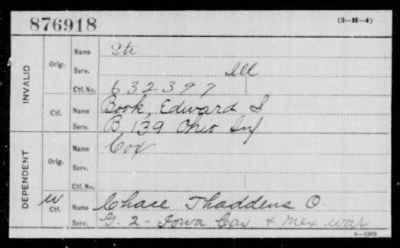 876918 (3—H—4)
INVALID
Orig. Name Ste
Serv. Ill
Ctf. No. 632397
Ctf. Name Book, Edward S
Serv. B, 139 Ohio Inf
DEPENDENT
Orig. Name Cox
Serv.
Ctf. No.
W Ctf. Name Chase Thaddens O.
Serv. G. 2 - Iowa Cav & Mex war